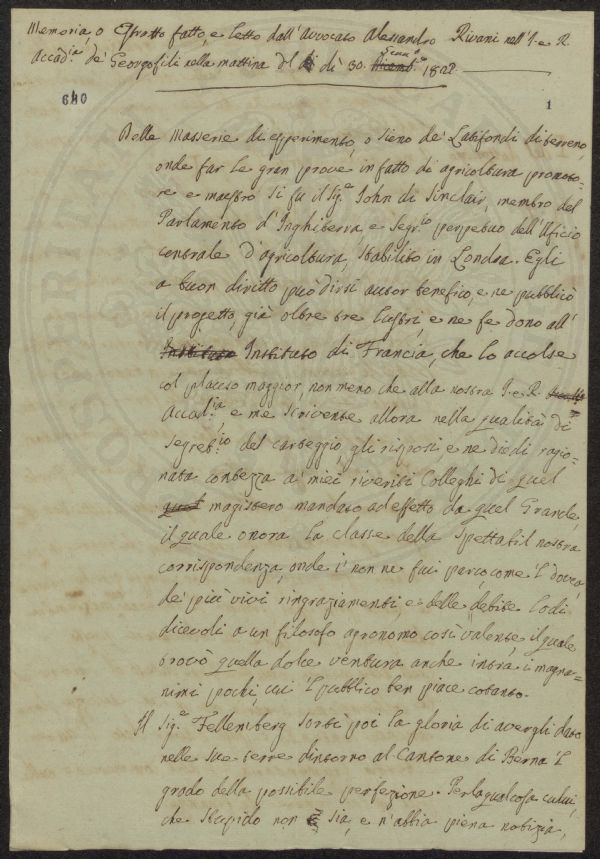 Memoria, o Estratto fatto, e letto dall'Avvocato Alessandro Rivani nell'I. e R.
Accad.ia de' Georgofili nella mattina del dì 30. Genn.o 1828.
640
1
Delle Masserie di esperimento, o sieno de' Latifondi di terreno,
onde far le gran prove in fatto di agricoltura promoto-
re e maestro si fu il Sig.e John di Sinclair, membro del
Parlamento d'Inghilterra, e Segr.io perpetuo dell'Ufficio
centrale d'agricoltura, stabilito in Londra. Egli
a buon diritto può dirsi autor benefico, e ne pubblicò
il progetto, già oltre tre lustri, e ne fe dono all'
Instituto Instituto di Francia, che lo accolse
col placuto maggior, non meno che alla nostra I. e R.
Accad.ia e me scrivente allora nella qualità di
Segret.io del carteggio, gli risposi, e ne diedi ragio-
nata contezza a' miei riveriti Colleghi di quel
quel magistero mandato ad effetto da quel Grande,
il quale onora la classe della spettabil nostra
corrispondenza, onde i' non ne fui parco, come 'l dovea,
de' più vivi ringraziamenti, e delle debite lodi
dicevoli a un filosofo agronomo così valente, il quale
trovò quella dolce ventura anche intra i magna-
nimi pochi, cui 'l pubblico ben piace cotanto.
Il Sig.e Fellemberg sortì poi la gloria di avergli dato
nelle sue terre dintorno al Cantone di Berna 'l
grado della possibile perfezione. Perlaqualcosa colui,
che stupido non sia, e n'abbia piena notizia,